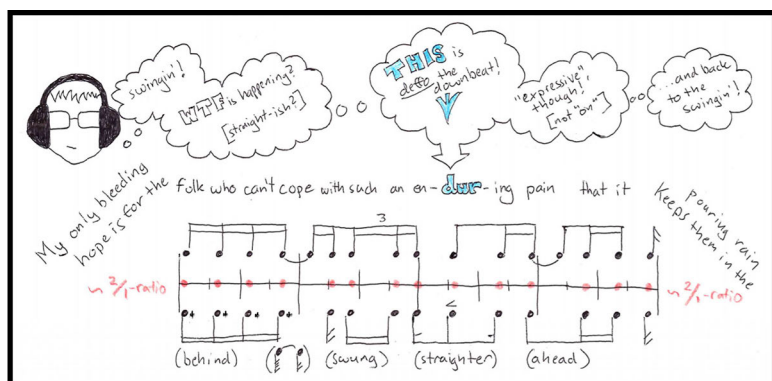 swingin'!
WTF is happening?
[straight-ish?]
THIS is
deffo the
downbeat!
"expressive"
though!,
[not "on"]
...and back
to the
swingin'!
My only bleeding
hope is for the
folk who can't cope with such an en-dur-ing pain that it
Keeps them in the
pouring rain
3
~ 2/1-ratio
~ 2/1-ratio
<
(behind)
(swung)
(straighter)
(ahead)